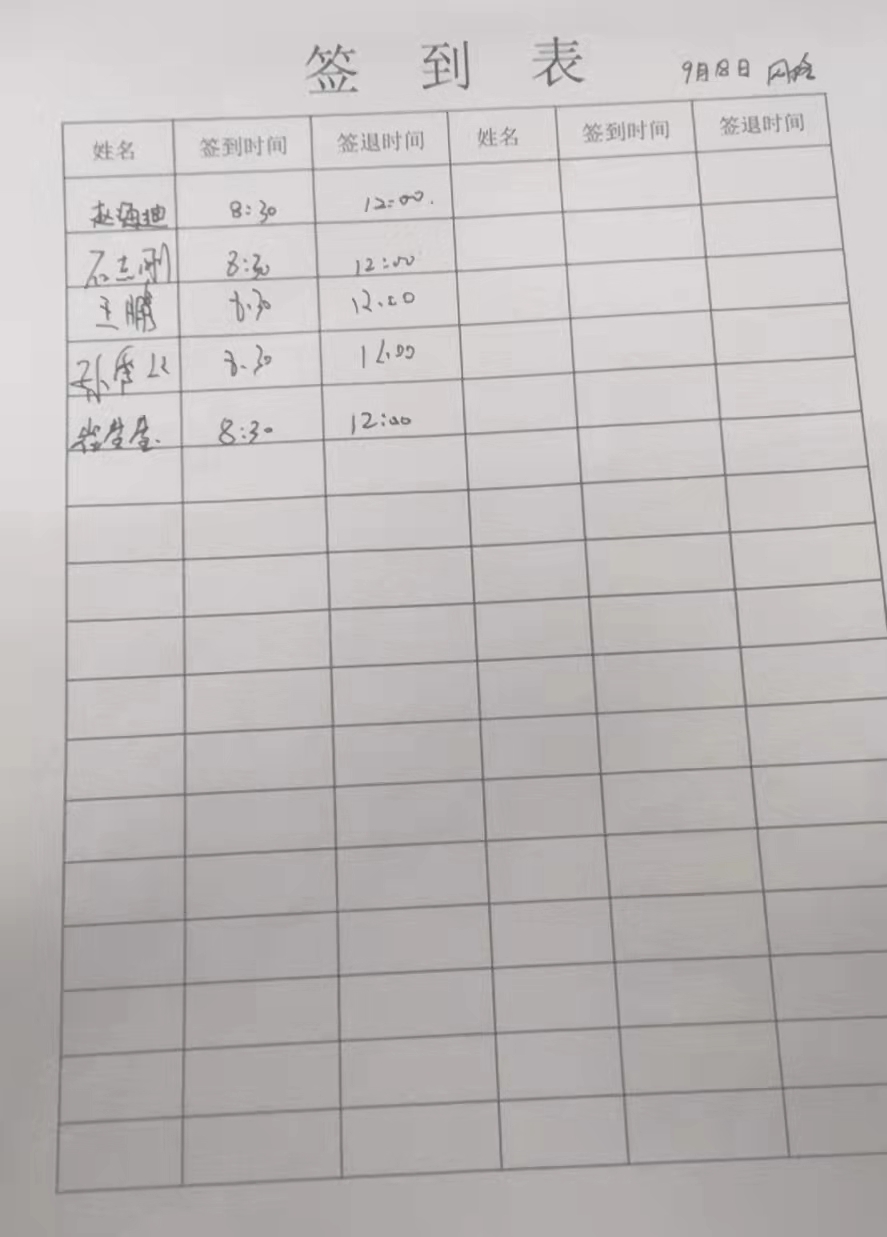 签到表
9月8日 网格
姓名 签到时间 签退时间 姓名 签到时间 签退时间
赵海迪 8:30 12:00.
石志刚 8:30 12:00
王鹏 8.30 12.00
孙 8.30 12.00
8:30 12:00